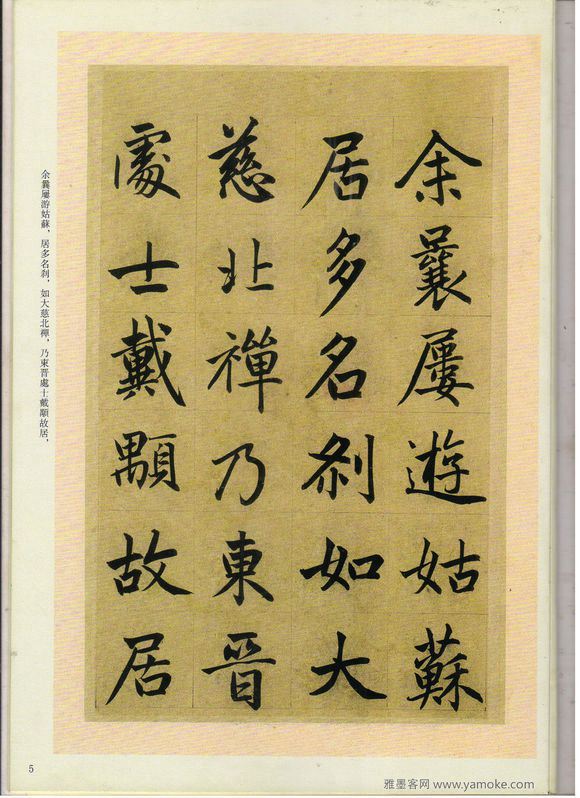 余曩屢遊姑蘇
居多名刹如大
慈北禪乃東晉
處士戴顒故居
余曩屢游姑蘇，居多名刹，如大慈北禪，乃東晋處士戴顒故居，
5
雅墨客网 www.yamoke.com